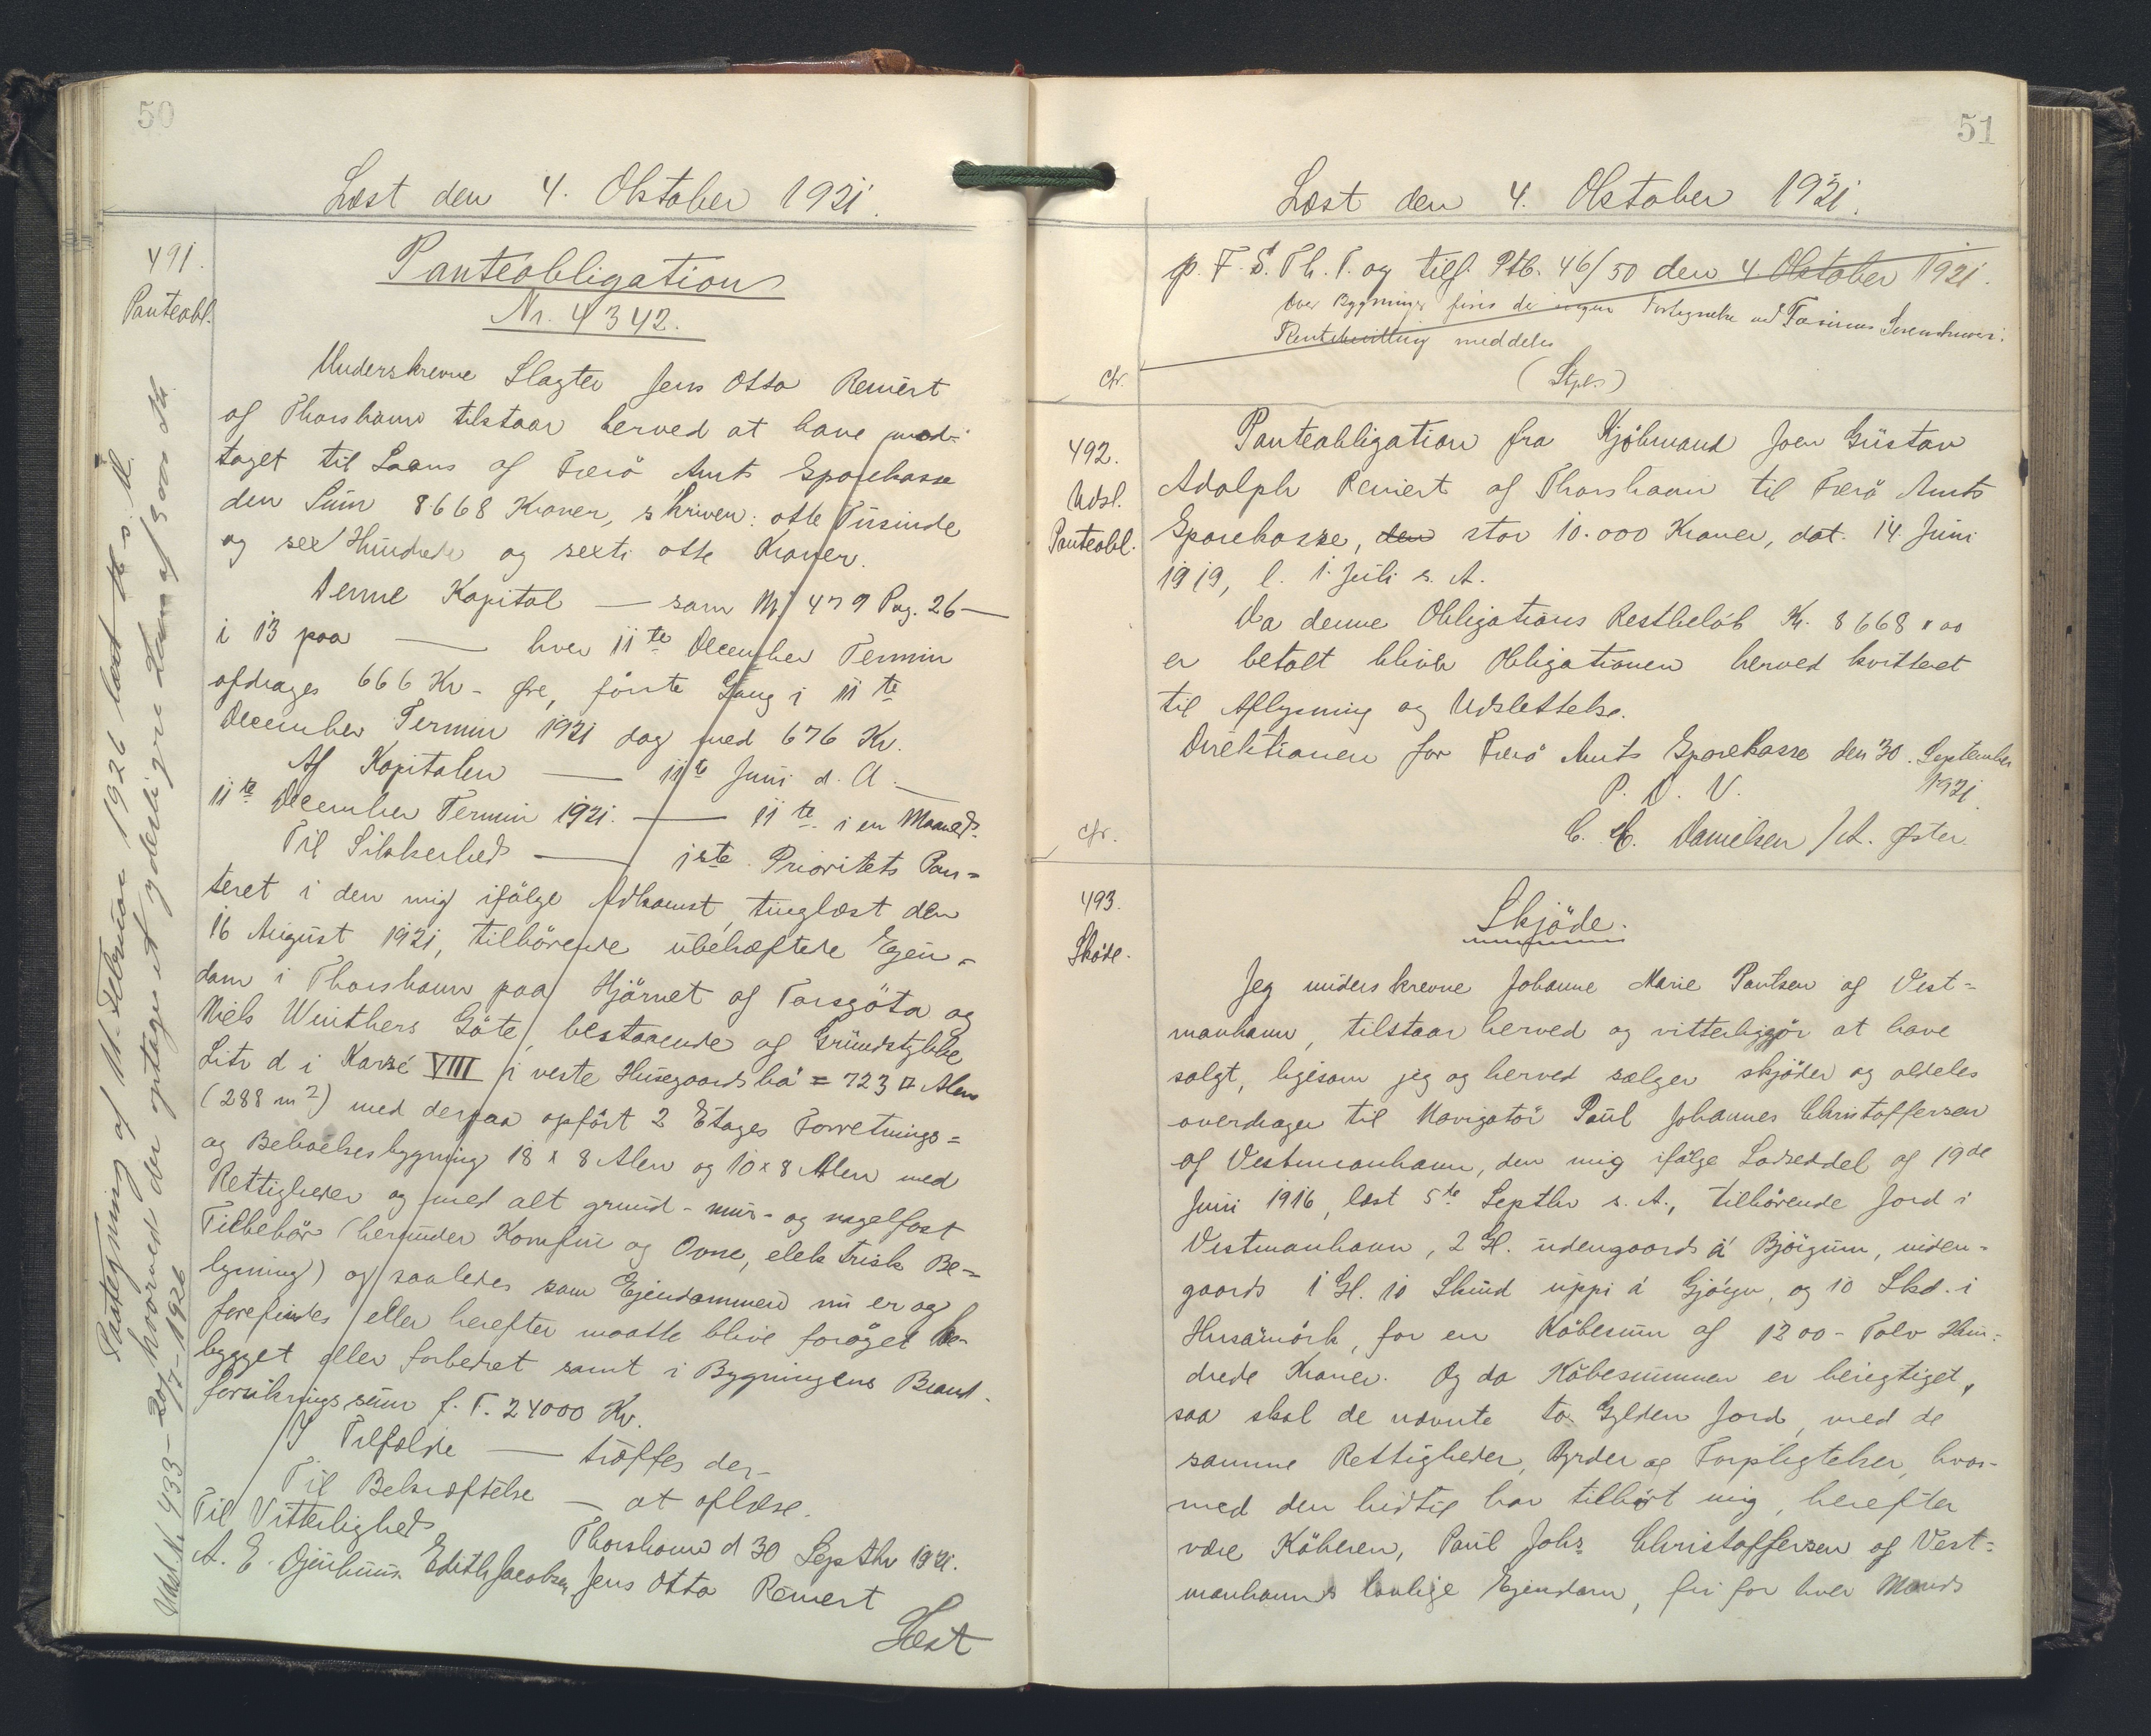 50
Læst den 4. Oktober 1921.
491.
Panteobl.
Panteobligation
Nr. 4342.
Underskrevne Slagter Jens Otto Reinert
af Thorshavn tilstaar herved at have mod-
taget til Laans af Færø Amts Sparekasse
den Sum 8668 Kroner, skriver: otte Tusinde
og sex Hundrede og sexti otte Kroner.
Denne Kapital — som Nr. 479 Pag. 26 —
i 13 paa — hver 11te December Termin
afdrages 666 Kr - Øre, første Gang i 11te
December Termin 1921 dog med 676 Kr.
Af Kapitalen — 11te Juni d. A. —
11te December Termin 1921. — 11te i en Maaned.
Til Sikkerhed — 1ste Prioritets Pan=
teret i den mig ifølge Adkomst, tinglæst den
16 August 1921, tilhørende ubehæftede Ejen=
dom i Thorshavn paa Hjørnet af Torsgöta og
Niels Winthers Göte, bestaaende af Grundstykke
Litr d i Karré VIII i veste Husegaards bø = 723 □ Alen
(288 m²) med derpaa opført 2 Etages Forretnings=
og Beboelsesbygning 18 x 8 Alen og 10 x 8 Alen med
Rettigheder og med alt grund- mur- og nagelfast
Tilbehør (herunder Komfur og Ovne, elektrisk Be=
lysning) og saaledes som Ejendommen nu er og
forefindes eller herefter maatte blive forøget be-
bygget eller forbedret samt i Bygningens Brand-
forsikringssum f. T. 24000 Kr.
I Tilfælde — træffes der-
Til Bekræftelse — at aflæse.
Thorshavn d 30 Septbr 1921.
Til Vitterlighed
A. E. Djurhuus Edith Jacobsen Jens Otto Reinert
Læst
Paategning af 11. Februar 1926 læst s. A.
hvorved der optages et yderligere Laan af
Udsl. Nr 433 - 20/7 - 1926
51
Læst den 4. Oktober 1921.
p. F. S. Th. T. og tilf. Ptb. 46/50 den 4 Oktober 1921.
Over Bygninger findes der ingen Fortegnelse ved Færøernes Sorenskriveri.
meddeles
(Stpls)
cfr.
492.
Udsl.
Panteobl.
Panteobligation fra Kjøbmand Joen Gustav
Adolph Reinert af Thorshavn til Færø Amts
Sparekasse, den stor 10.000 Kroner, dat. 14. Juni
1919, l. 1. Juli s. A.
Da denne Obligations Restbeløb Kr. 8668 x 00
er betalt bliver Obligationen herved kvitteret
til Aflysning og Udslettelse.
Direktionen for Færø Amts Sparekasse den 30. September
1921.
P. D. V.
C. C. Danielsen / A. Øster.
cfr.
493.
Skøde.
Skjøde.
Jeg underskrevne Johanne Marie Poulsen af Vest=
manhavn, tilstaar herved og vitterliggjør at have
solgt, ligesom jeg og herved sælger skjøder og aldeles
overdrager til Navigatør Paul Johannes Christoffersen
af Vestmanhavn, den mig ifølge Lodseddel af 19de
Juni 1916, læst 5te Septbr s. A., tilhørende Jord i
Vestmanhavn, 2 Gl. udengaards á Bjöigum, uden=
gaards 1 Gl. 10 Skind uppi á Gjógv, og 10 Skd. i
Husamörk, for en Købesum af 1200 - Tolv Hun=
drede Kroner. Og da Købesummen er berigtiget,
saa skal de nævnte to Gylden Jord, med de
samme Rettigheder, Byrder og Forpligtelser, hvor-
med den hidtil har tilhørt mig, herefter
være Köberen, Paul Johs Christoffersen af Vest=
manhavns lovlige Ejendom, fri for hver Mands